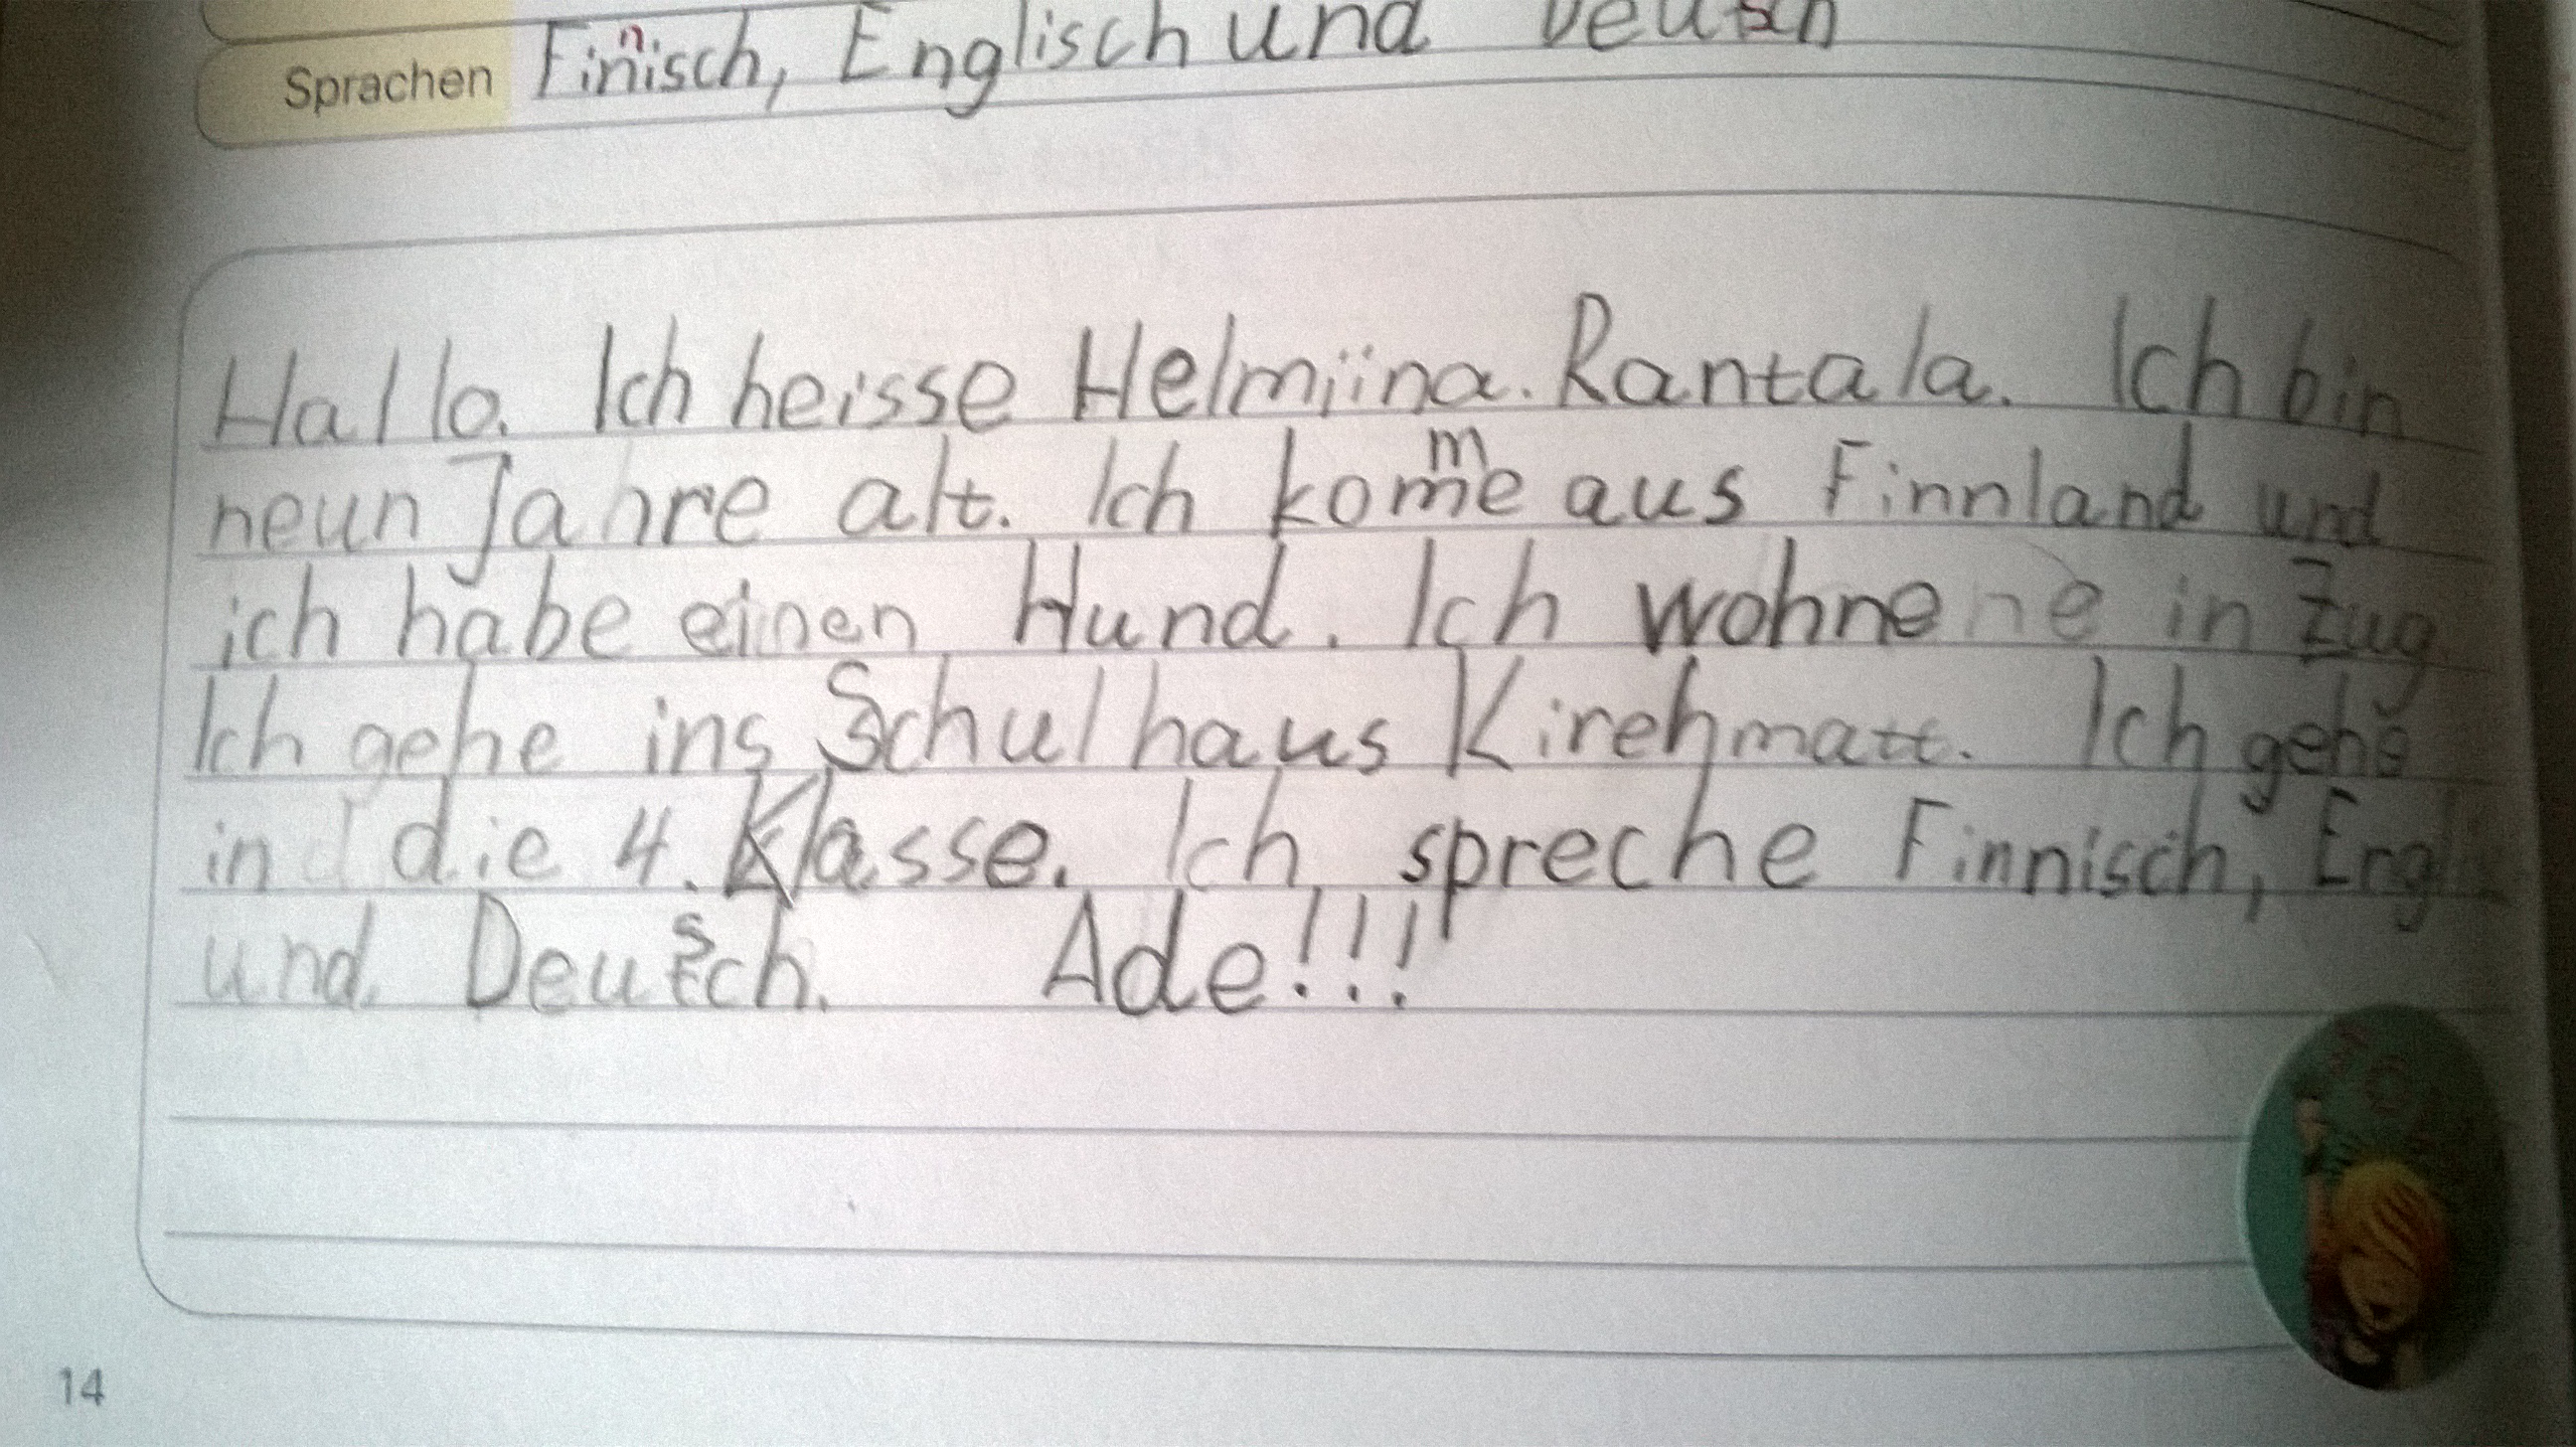 Sprachen Finnisch, Englisch und Deutsch
Hallo. Ich heisse Helmiina. Rantala. Ich bin
neun Jahre alt. Ich komme aus Finnland und
ich habe einen Hund. Ich wohne in Zug
Ich gehe ins Schulhaus Kirchmatt. Ich gehe
in die 4. Klasse. Ich spreche Finnisch, Engli
und Deutsch. Ade!!!
14